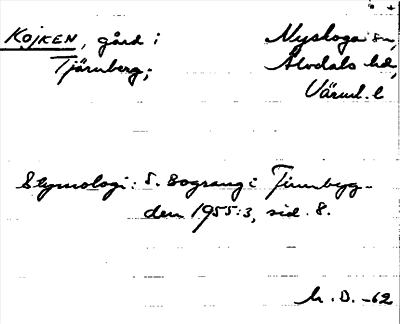 KOJKEN, gård i
Tjärnberg;
Nyskoga sn,
Älvdals hd,
Värml. l
Etymologi: S. Bograng i Finnbyg-
den 1955:3, sid. 8.
h. D. -62